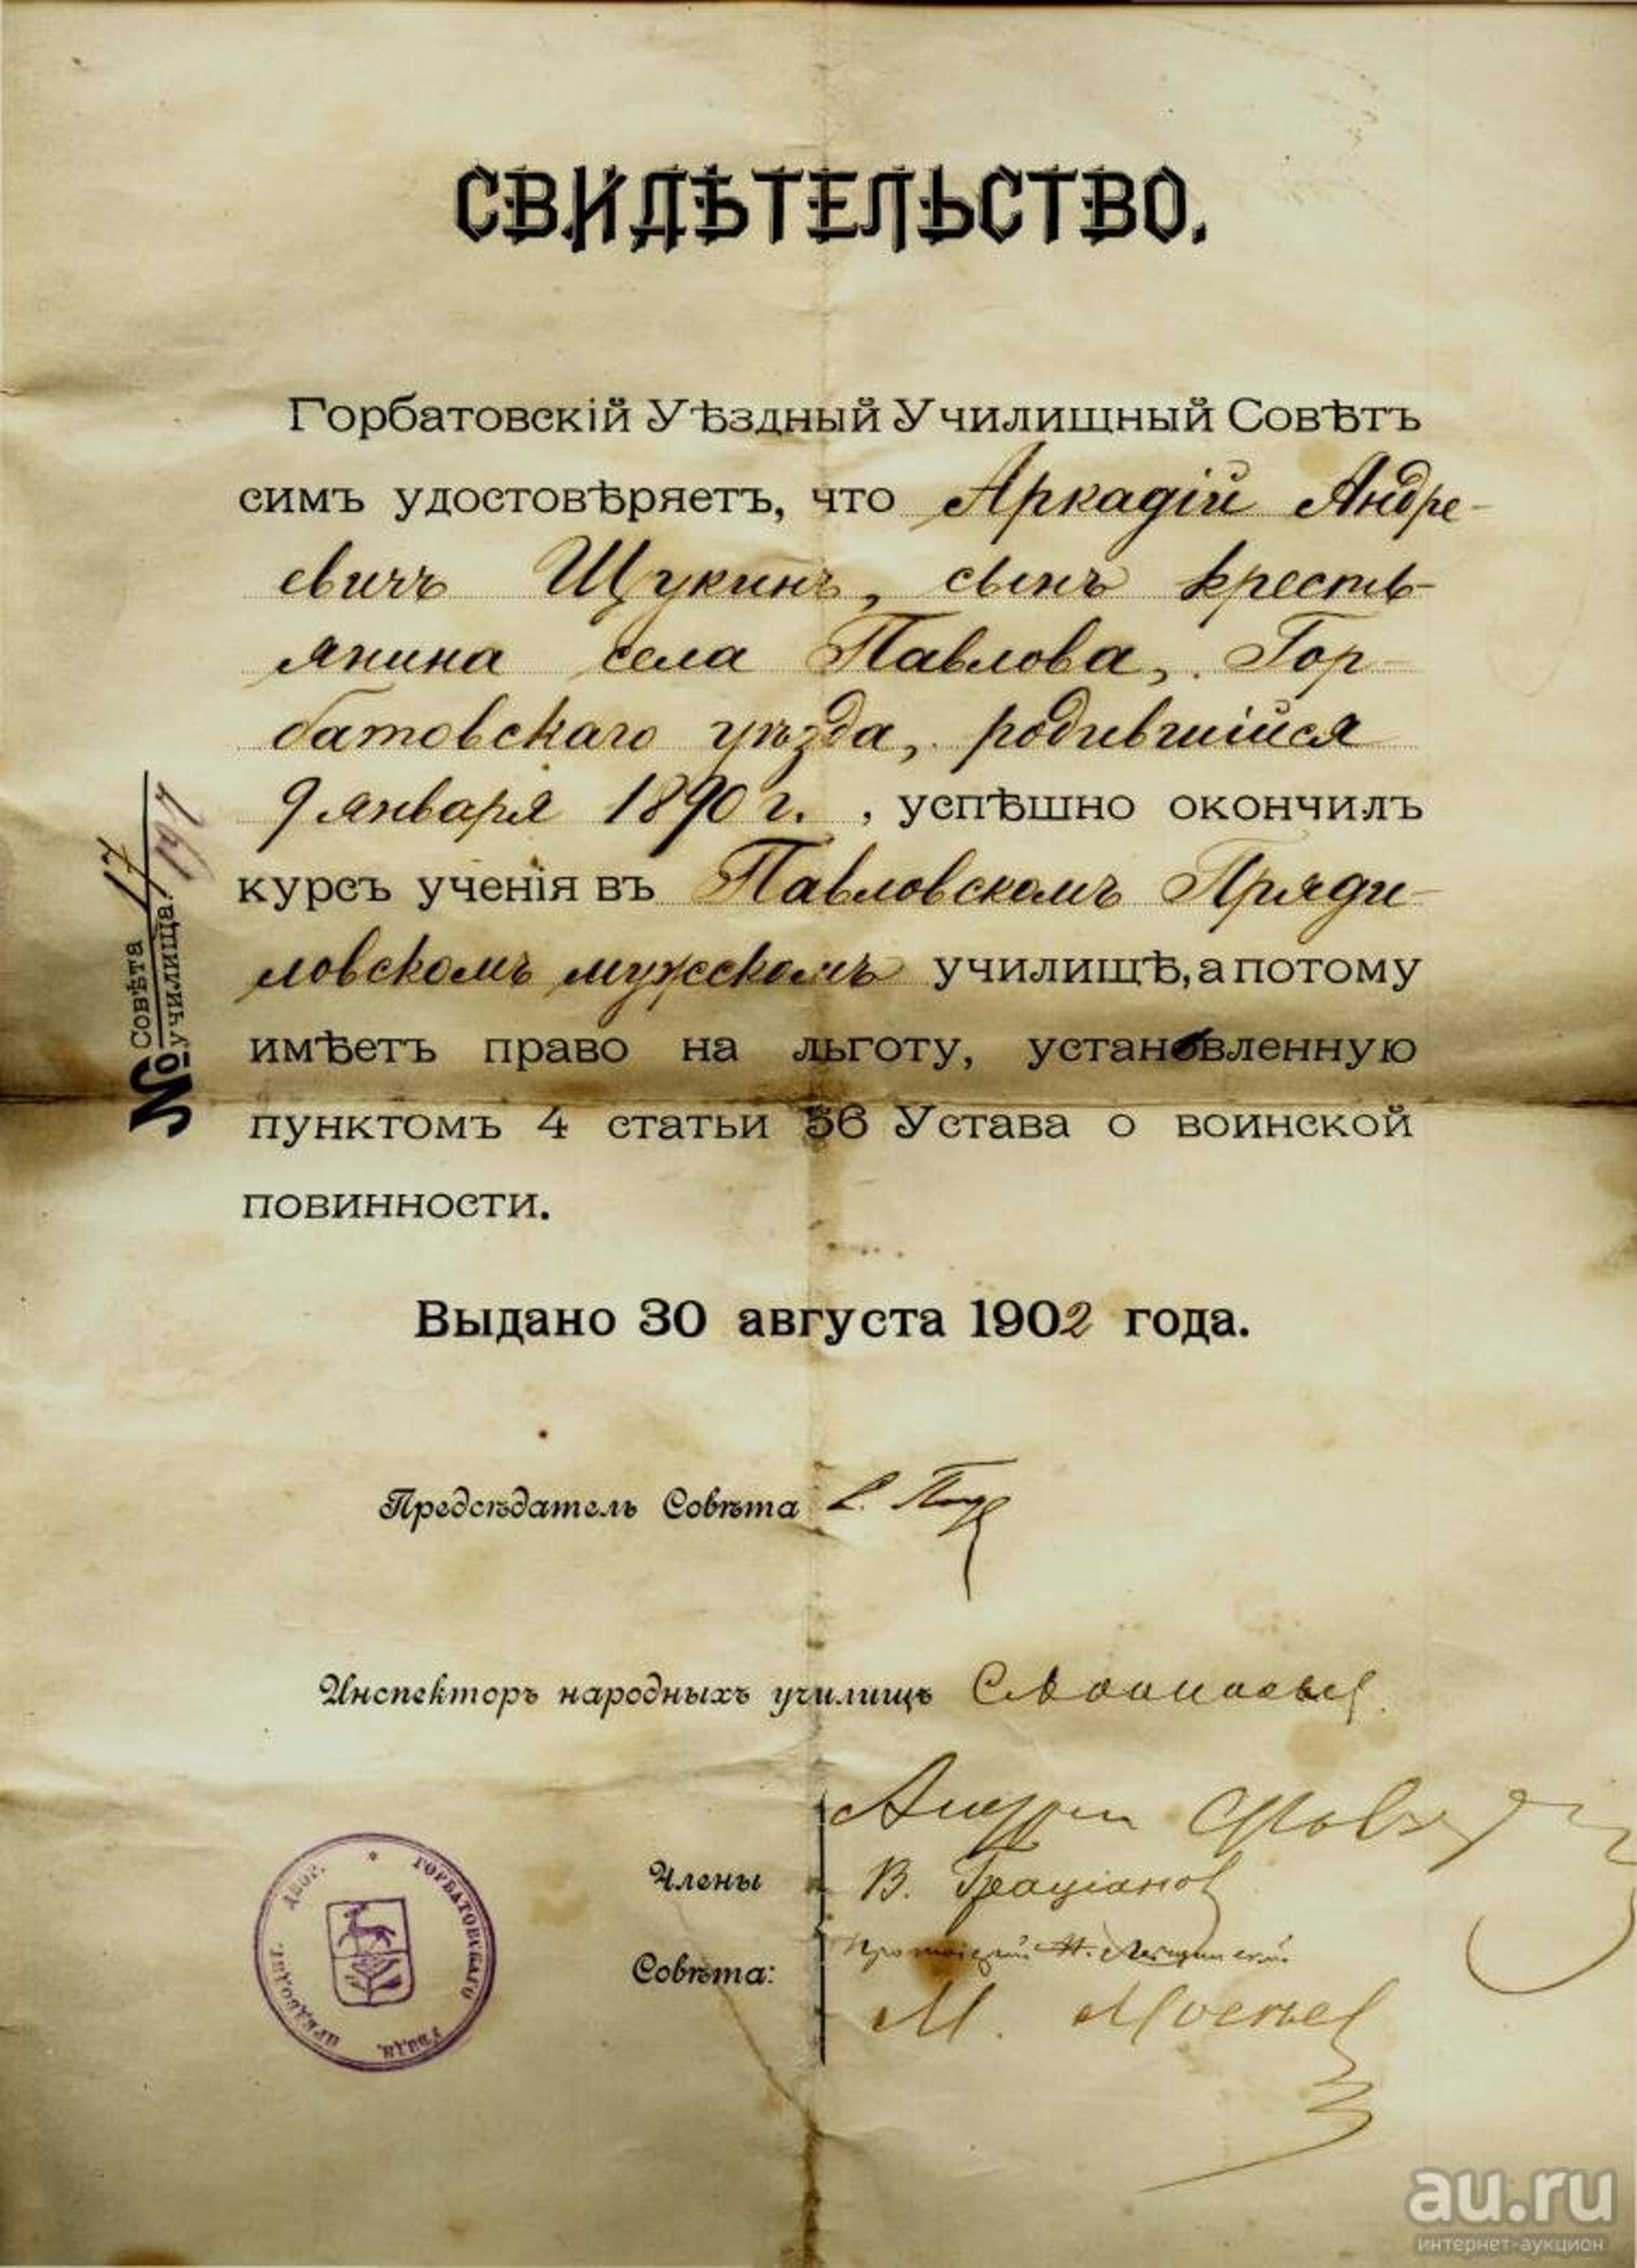 СВИДѢТЕЛЬСТВО.
Горбатовскій Уѣздный Училищный Совѣтъ
симъ удостовѣряетъ, что Аркадій Андре-
евичъ Щукинъ, сынъ кресть-
янина села Павлова, Гор-
батовскаго уѣзда, родившійся
9 января 1890 г. , успѣшно окончилъ
курсъ ученія въ Павловскомъ Пряди-
ловскомъ мужскомъ училищѣ, а потому
имѣетъ право на льготу, установленную
пунктомъ 4 статьи 56 Устава о воинской
повинности.
№ Совѣта 17
училища 197
Выдано 30 августа 1902 года.
Предсѣдатель Совѣта
Инспекторъ народныхъ училищъ
Члены В. Граціановъ
Совѣта: Протоіерей Н.
М.
ГОРБАТОВСКАГО УѢЗДА. ПРЕДВОДИТ. ДВОР.
au.ru
интернет-аукцион